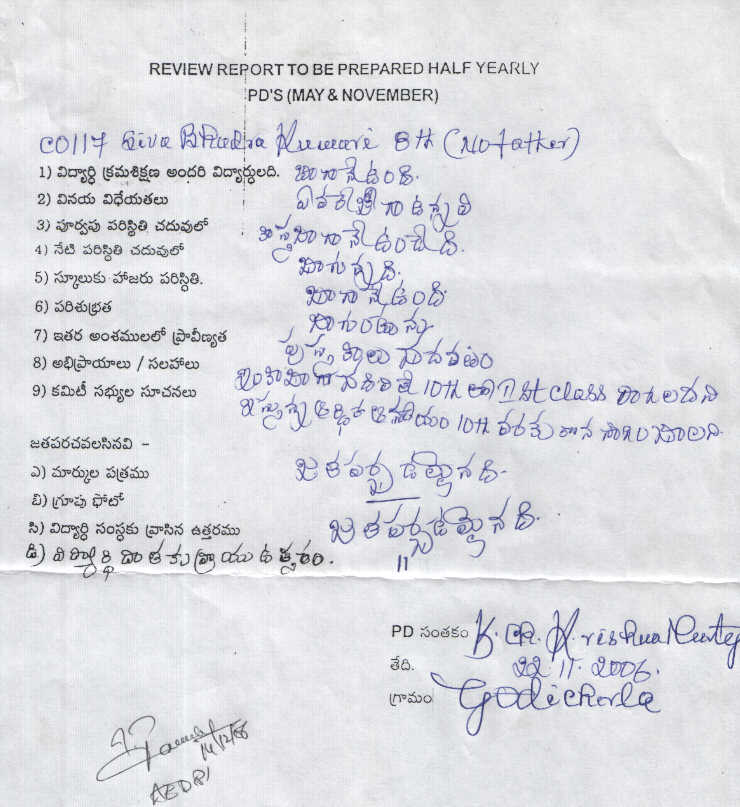 REVIEW REPORT TO BE PREPARED HALF YEARLY
PD'S (MAY & NOVEMBER)
C0117 Siva Bhadra Kumari 8th (No father)
1) విద్యార్ధి క్రమశిక్షణ అందరి విద్యార్ధులది. బాగానే ఉంది.
2) వినయ విధేయతలు
3) పూర్వపు పరిస్థితి చదువులో బాగానే ఉండేది.
4) నేటి పరిస్థితి చదువులో బాగున్నది.
5) స్కూలుకు హాజరు పరిస్థితి. బాగానే ఉంది
6) పరిశుభ్రత బాగుంటాను
7) ఇతర అంశములలో ప్రావీణ్యత పుస్తకాలు చదవటం
8) అభిప్రాయాలు / సలహాలు ఇంకా బాగా చదివితే 10th లో Ist class రాగలదని
9) కమిటీ సభ్యుల సూచనలు ఇస్తున్న ఆర్థిక సహాయం 10th వరకు
జతపరచవలసినవి -
ఎ) మార్కుల పత్రము జతపర్చడమైనది.
బి) గ్రూపు ఫోటో
సి) విద్యార్ధి సంస్థకు వ్రాసిన ఉత్తరము జతపర్చడమైనది.
డి) విద్యార్థి దాతకు వ్రాయు ఉత్తరం. 11
PD సంతకం K. Ch. Krishna Murty
తేది. 22.11.2006.
గ్రామం Godicherla
14/12/06
AEDRI